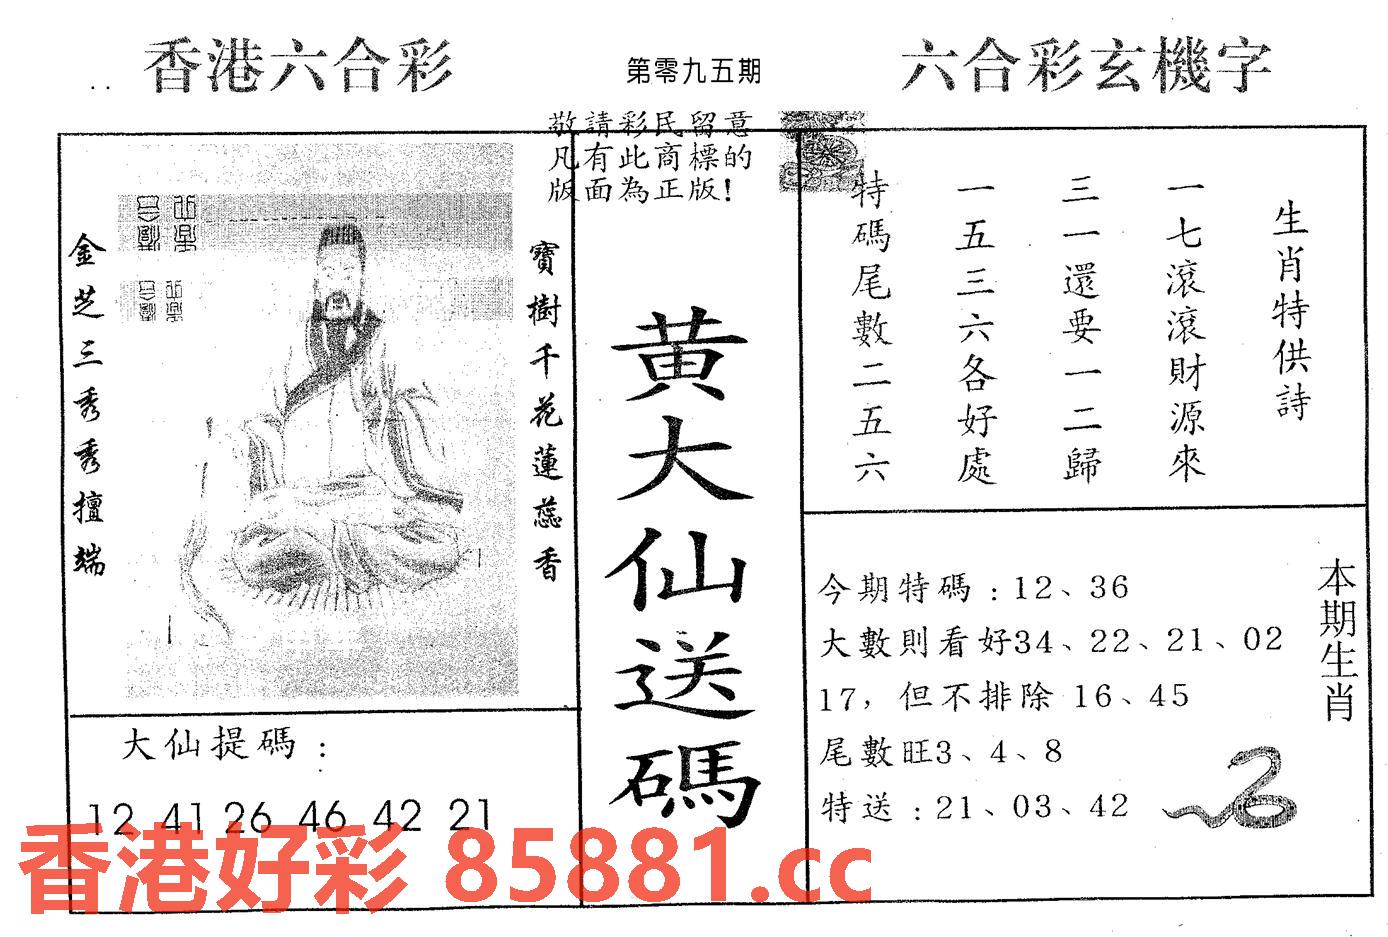 香港六合彩
第零九五期
六合彩玄機字
敬請彩民留意
凡有此商標的
版面為正版!
金芝三秀秀擅端
寶樹千花蓮蕊香
黄大仙送碼
生肖特供詩
一七滾滾財源來
三一還要一二歸
一五三六各好處
特碼尾數二五六
大仙提碼:
12 41 26 46 42 21
本期生肖
今期特碼:12、36
大數則看好34、22、21、02
17，但不排除 16、45
尾數旺3、4、8
特送:21、03、42
香港好彩 85881.cc